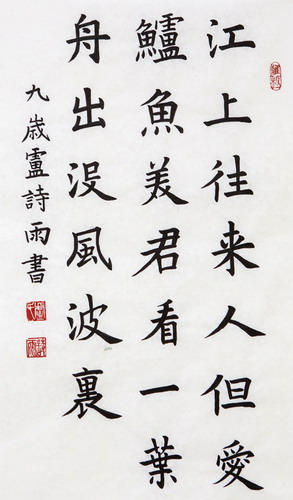 江上往来人但愛
鱸魚美君看一葉
舟出没風波裏
九歳盧詩雨書